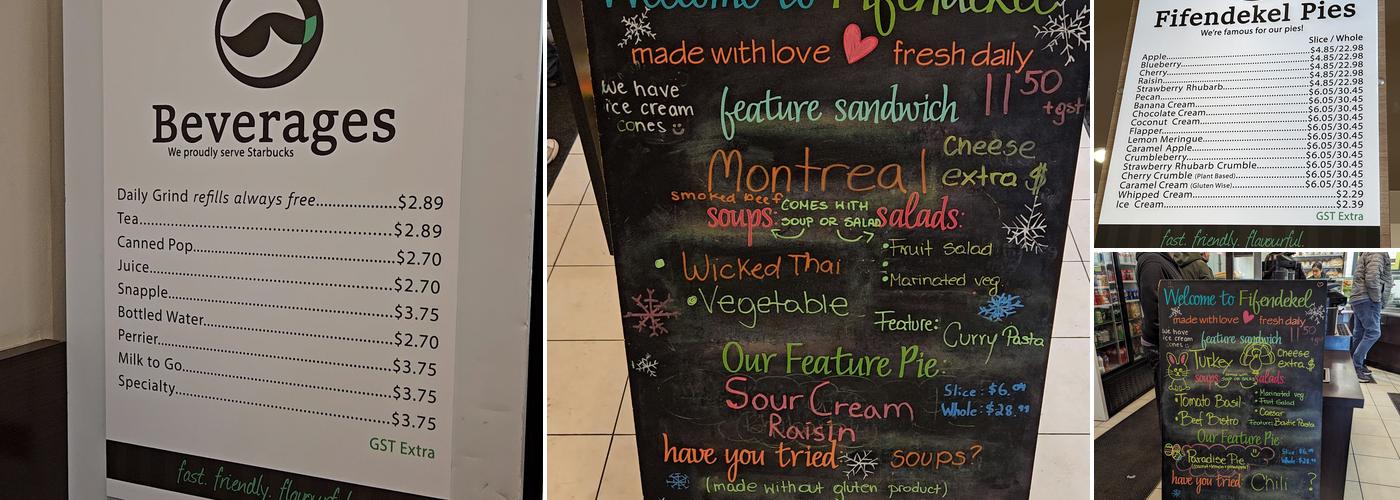 Beverages
We proudly serve Starbucks
Daily Grind refills always free $2.89
Tea $2.89
Canned Pop $2.70
Juice $2.70
Snapple $3.75
Bottled Water $2.70
Perrier $3.75
Milk to Go $3.75
Specialty $3.75
GST Extra
fast. friendly. flavourful.
Welcome to Fifendekel
made with love fresh daily
we have ice cream cones
feature sandwich 11 50 +gst
Montreal Cheese extra $
smoked beef
soups: COMES WITH SOUP OR SALAD salads:
Wicked Thai
• Fruit Salad
• Vegetable
• Marinated veg.
Feature: Curry Pasta
Our Feature Pie:
Sour Cream Raisin
Slice: $6.09
Whole: $28.99
have you tried: soups?
(made without gluten product)
Fifendekel Pies
We're famous for our pies!
Slice / Whole
Apple $4.85/22.98
Blueberry $4.85/22.98
Cherry $4.85/22.98
Raisin $4.85/22.98
Strawberry Rhubarb $4.85/22.98
Pecan $6.05/30.45
Banana Cream $6.05/30.45
Chocolate Cream $6.05/30.45
Coconut Cream $6.05/30.45
Flapper $6.05/30.45
Lemon Meringue $6.05/30.45
Caramel Apple $6.05/30.45
Crumbleberry $6.05/30.45
Strawberry Rhubarb Crumble $6.05/30.45
Cherry Crumble (Plant Based) $6.05/30.45
Caramel Cream (Gluten Wise) $6.05/30.45
Whipped Cream $2.29
Ice Cream $2.39
GST Extra
fast. friendly. flavourful.
Welcome to Fifendekel
made with love fresh daily
we have ice cream cones
feature sandwich 11 50
Turkey Cheese extra $
soups salads:
• Tomato Basil
• Marinated veg
• Fruit Salad
• Beef Bistro
• Caesar
Feature: Bowtie Pasta
Our Feature Pie
Paradise Pie
Slice: $6.09
Whole: $28.99
have you tried: Chili ?